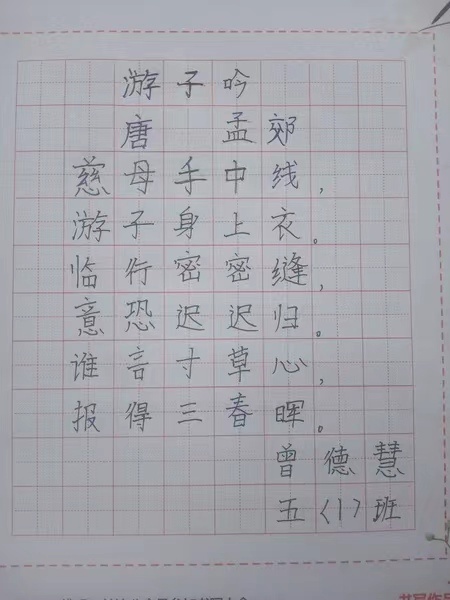 游子吟
唐 孟郊
慈母手中线，
游子身上衣。
临行密密缝，
意恐迟迟归。
谁言寸草心，
报得三春晖。
曾德慧
五〈1〉班